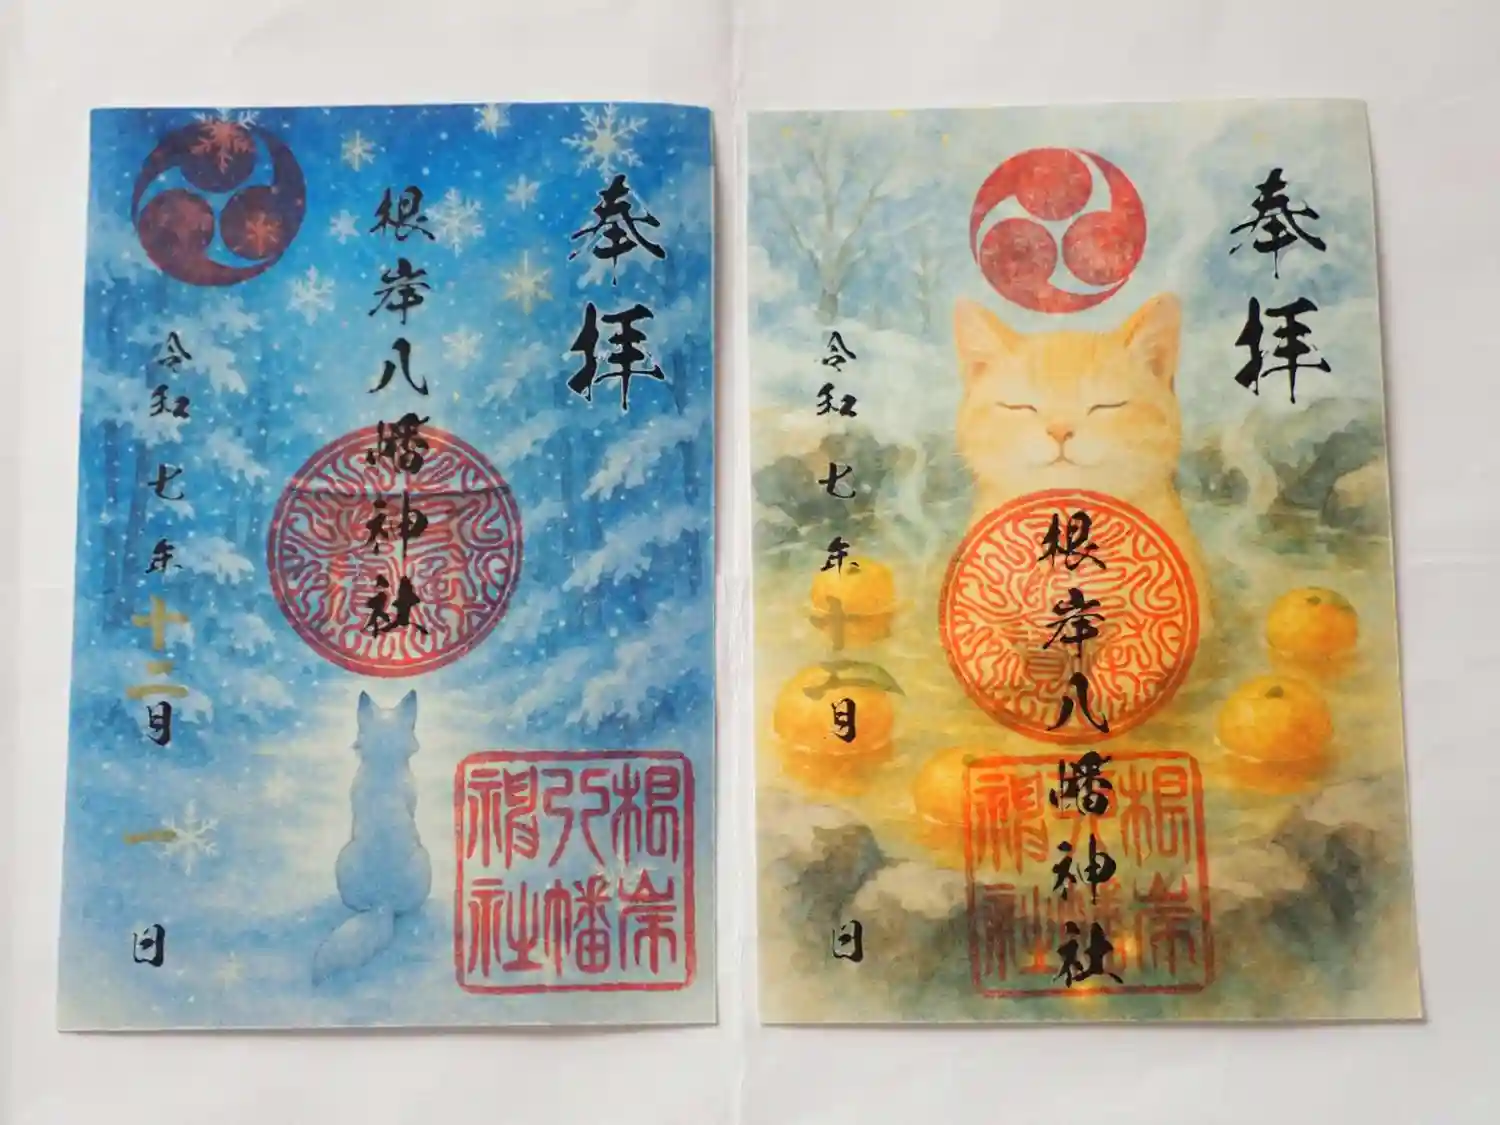 奉拝
根岸八幡神社
令和七年十二月一日
根岸
八幡
神社
奉拝
根岸八幡神社
令和七年十二月 日
根岸
八幡
神社